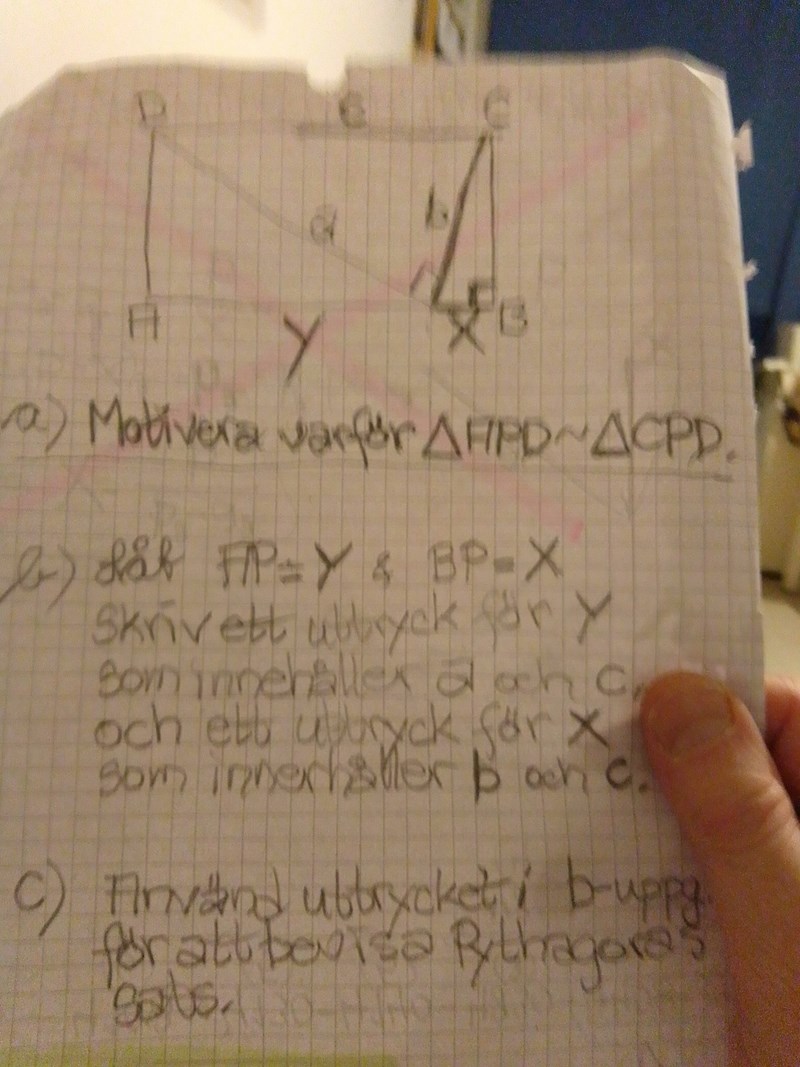 D
c
C
a
b
A
B
Y
X
a) Motivera varför △APD~△CPD.
b) Låt AP=Y & BP=X
Skriv ett uttryck för Y
som innehåller a och c,
och ett uttryck för X
som innerhåller b och c.
c) Använd uttrycket i b-uppg.
för att bevisa Pythagoras
sats.